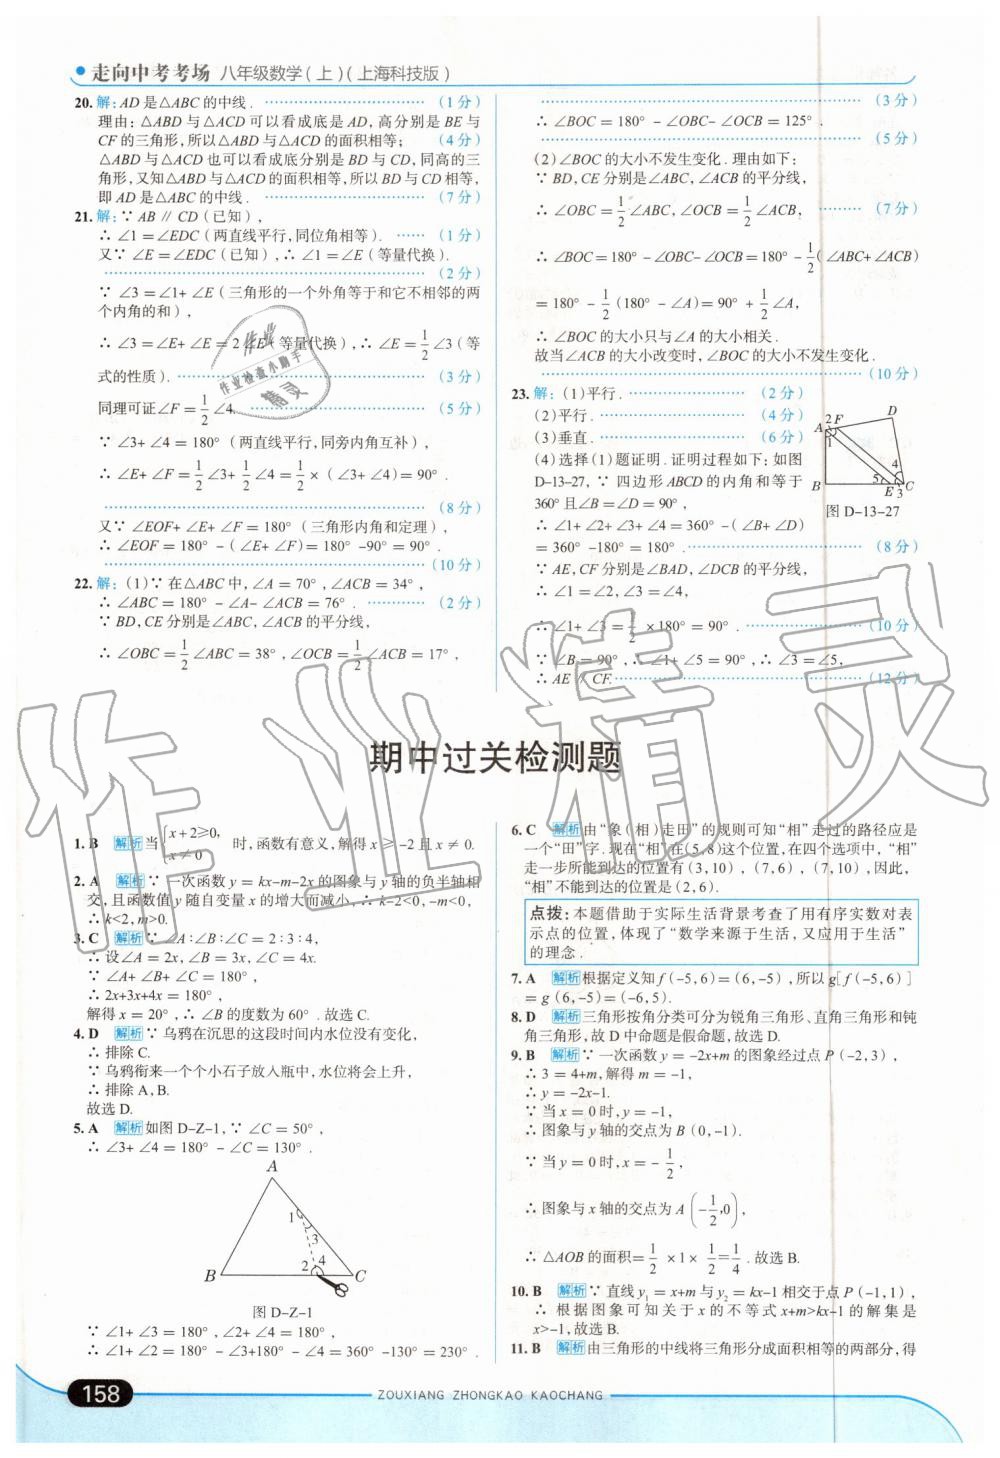 走向中考考场 八年级数学(上)(上海科技版)
20.解:AD是△ABC的中线. (1分)
理由:△ABD与△ACD可以看成底是AD,高分别是BE与
CF的三角形,所以△ABD与△ACD的面积相等; (4分)
△ABD与△ACD也可以看成底分别是BD与CD,同高的三
角形,又知△ABD与△ACD的面积相等,所以BD与CD相等,
即AD是△ABC的中线. (7分)
21.解:∵AB∥CD(已知),
∴∠1=∠EDC(两直线平行,同位角相等). (1分)
又∵∠E=∠EDC(已知),∴∠1=∠E(等量代换).
(2分)
∵∠3=∠1+∠E(三角形的一个外角等于和它不相邻的两
个内角的和),
∴∠3=∠E+∠E=2∠E(等量代换),∴∠E=1/2∠3(等
式的性质). (3分)
同理可证∠F=1/2∠4. (5分)
∵∠3+∠4=180°(两直线平行,同旁内角互补),
∴∠E+∠F=1/2∠3+1/2∠4=1/2×(∠3+∠4)=90°.
(8分)
又∵∠EOF+∠E+∠F=180°(三角形内角和定理),
∴∠EOF=180°-(∠E+∠F)=180°-90°=90°.
(10分)
22.解:(1)∵在△ABC中,∠A=70°,∠ACB=34°,
∴∠ABC=180°-∠A-∠ACB=76°. (2分)
∵BD,CE分别是∠ABC,∠ACB的平分线,
∴∠OBC=1/2∠ABC=38°,∠OCB=1/2∠ACB=17°,
(3分)
∴∠BOC=180°-∠OBC-∠OCB=125°.
(5分)
(2)∠BOC的大小不发生变化.理由如下:
∵BD,CE分别是∠ABC,∠ACB的平分线,
∴∠OBC=1/2∠ABC,∠OCB=1/2∠ACB, (7分)
∴∠BOC=180°-∠OBC-∠OCB=180°-1/2(∠ABC+∠ACB)
=180°-1/2(180°-∠A)=90°+1/2∠A,
∴∠BOC的大小只与∠A的大小相关.
故当∠ACB的大小改变时,∠BOC的大小不发生变化.
(10分)
23.解:(1)平行. (2分)
(2)平行. (4分)
(3)垂直. (6分)
(4)选择(1)题证明.证明过程如下:如图
D-13-27,∵四边形ABCD的内角和等于
360°且∠B=∠D=90°,
A 2 F D 1 4 B 5 E 3 C
图D-13-27
∴∠1+∠2+∠3+∠4=360°-(∠B+∠D)
=360°-180°=180°. (8分)
∵AE,CF分别是∠BAD,∠DCB的平分线,
∴∠1=∠2,∠3=∠4,
∴∠1+∠3=1/2×180°=90°. (10分)
∵∠B=90°,∴∠1+∠5=90°,∴∠3=∠5,
∴AE∥CF. (12分)
期中过关检测题
1.B 解析 当{x+2≥0, x≠0 时,函数有意义,解得x≥-2且x≠0.
2.A 解析 ∵一次函数y=kx-m-2x的图象与y轴的负半轴相
交,且函数值y随自变量x的增大而减小,∴k-2<0,-m<0,
∴k<2,m>0.
3.C 解析 ∵∠A:∠B:∠C=2:3:4,
∴设∠A=2x,∠B=3x,∠C=4x.
∵∠A+∠B+∠C=180°,
∴2x+3x+4x=180°,
解得x=20°,∴∠B的度数为60°.故选C.
4.D 解析 ∵乌鸦在沉思的这段时间内水位没有变化,
∴排除C.
∵乌鸦衔来一个个小石子放入瓶中,水位将会上升,
∴排除A,B.
故选D.
5.A 解析 如图D-Z-1,∵∠C=50°,
∴∠3+∠4=180°-∠C=130°.
A
1
3
2 4
B C
图D-Z-1
∵∠1+∠3=180°,∠2+∠4=180°,
∴∠1+∠2=180°-∠3+180°-∠4=360°-130°=230°.
6.C 解析 由“象(相)走田”的规则可知“相”走过的路径应是
一个“田”字.现在“相”在(5,8)这个位置,在四个选项中,“相”
走一步所能到达的位置有(3,10),(7,6),(7,10),因此,
“相”不能到达的位置是(2,6).
点拨:本题借助于实际生活背景考查了用有序实数对表
示点的位置,体现了“数学来源于生活,又应用于生活”
的理念.
7.A 解析 根据定义知f(-5,6)=(6,-5),所以g[f(-5,6)]
=g(6,-5)=(-6,5).
8.D 解析 三角形按角分类可分为锐角三角形、直角三角形和钝
角三角形,故D中命题是假命题,故选D.
9.B 解析 ∵一次函数y=-2x+m的图象经过点P(-2,3),
∴3=4+m,解得m=-1,
∴y=-2x-1.
∵当x=0时,y=-1,
∴图象与y轴的交点为B(0,-1).
∵当y=0时,x=-1/2,
∴图象与x轴的交点为A(-1/2,0),
∴△AOB的面积=1/2×1×1/2=1/4.故选B.
10.B 解析 ∵直线y₁=x+m与y₂=kx-1相交于点P(-1,1),
∴根据图象可知关于x的不等式x+m>kx-1的解集是
x>-1,故选B.
11.B 解析 由三角形的中线将三角形分成面积相等的两部分,得
158
ZOUXIANG ZHONGKAO KAOCHANG
作业精灵
作业
作业检查小助手
精灵